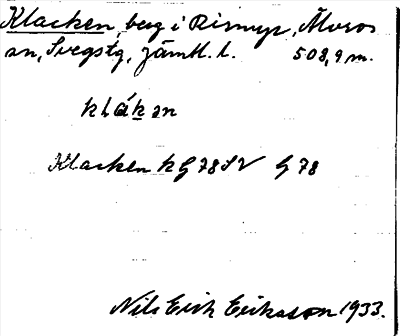 Klacken, berg i Rismyr, Älvros
sn, Svegs tg, Jämtl. l. 508,9 m.
klák̲ən
Klacken kg 78 SV G 78
Nils Erik Eriksson 1933.